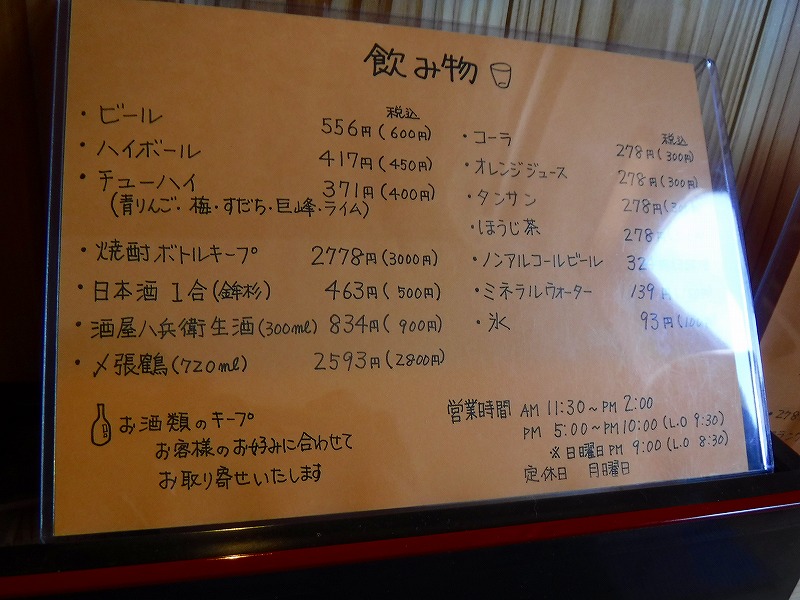 飲み物
税込
・ビール 556円(600円)
・ハイボール 417円(450円)
・チューハイ 371円(400円)
(青りんご・梅・すだち・巨峰・ライム)
・焼酎ボトルキープ 2778円(3000円)
・日本酒 1合(鉾杉) 463円(500円)
・酒屋八兵衛生酒(300ml) 834円(900円)
・〆張鶴(720ml) 2593円(2800円)
お酒類のキープ
お客様のお好みに合わせて
お取り寄せいたします
税込
・コーラ 278円(300円)
・オレンジジュース 278円(300円)
・タンサン 278円
・ほうじ茶 278
・ノンアルコールビール
・ミネラルウォーター 139円
・氷 93円
営業時間 AM 11:30～PM 2:00
PM 5:00～PM10:00(L.O 9:30)
※日曜日PM 9:00(L.O 8:30)
定休日 月曜日